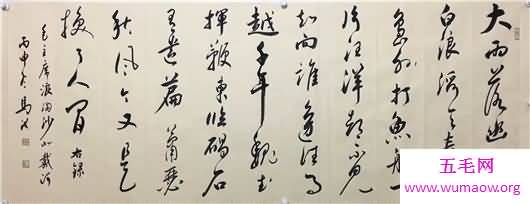 大雨落幽
白浪滔天秦
皇島外打魚船一
片汪洋都不見
知向誰邊往事
越千年魏武
揮鞭東臨碣石
有遺篇蕭瑟
秋風今又是
換了人間 右錄
毛主席浪淘沙北戴河
丙申冬馬
五毛网
www.wumaow.org